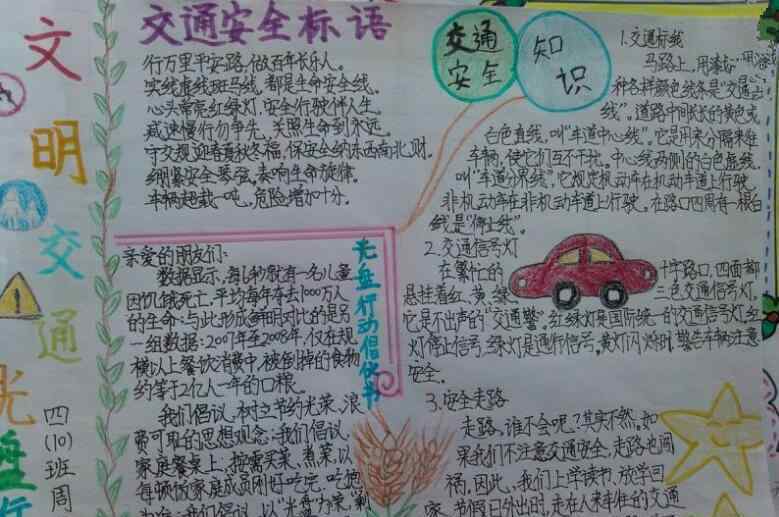 文
明
交
通
光
盘
行
四
(10)
班
周
交通安全标语
行万里平安路,做百年长乐人。
实线虚线斑马线,都是生命安全线。
心头常亮红绿灯,安全行驶伴人生。
减速慢行勿争先,关照生命到永远。
守交规迎春夏秋冬福,保安全纳东西南北财。
绷紧安全琴弦,奏响生命旋律。
车辆超载一吨,危险增加十分。
光盘行动倡议书
亲爱的朋友们:
数据显示,每6秒就有一名儿童
因饥饿死亡,平均每年夺去1000万人
的生命;与此形成鲜明对比的是另
一组数据:2007年至2008年,仅在规
模以上餐饮消费中,被倒掉的食物
约等于2亿人一年的口粮。
我们倡议,树立节约光荣、浪
费可耻的思想观念。我们倡议,
家庭餐桌上,按需买菜、煮菜,以
每顿饭家庭成员刚好吃完、吃饱
为准;我们倡议,以"光盘"为荣,剩
交通
安全
知
识
1.交通标线
马路上,用漆划
种各样颜色线条是"交通
线"。道路中间长长的黄色或
白色直线,叫"车道中心线"。它是用来分隔来往
车辆,使它们互不干扰。中心线两侧的白色虚线,
叫"车道分界线",它规定机动车在机动车道上行驶,
非机动车在非机动车道上行驶。在路口四周有一根白
线是"停止线"。
2.交通信号灯
在繁忙的十字路口,四面都
悬挂着红、黄、绿三色交通信号灯。
它是不出声的"交通警"。红绿灯是国际统一的交通信号灯。红
灯停止信号,绿灯是通行信号。黄灯闪烁时,警告车辆注意
安全。
3.安全走路
走路,谁不会呢?其实不然。如
果我们不注意交通安全,走路也闯
祸。因此,我们上学读书、放学回
家、节假日外出时,走在人来车往的交通